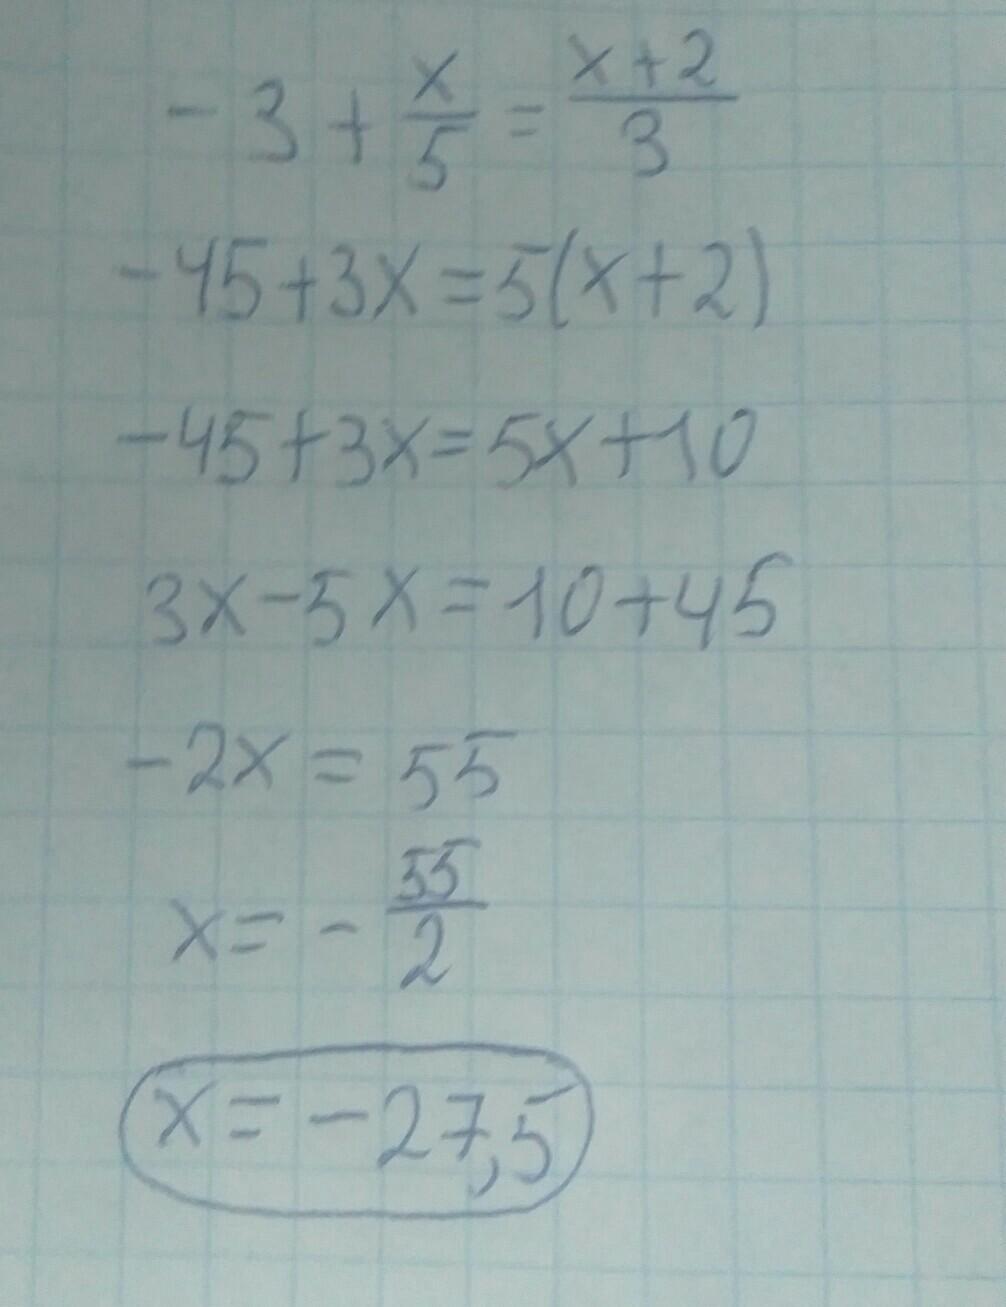 -3 + x/5 = (x+2)/3
-45+3x=5(x+2)
-45+3x=5x+10
3x-5x=10+45
-2x = 55
x= - 55/2
x= -27,5